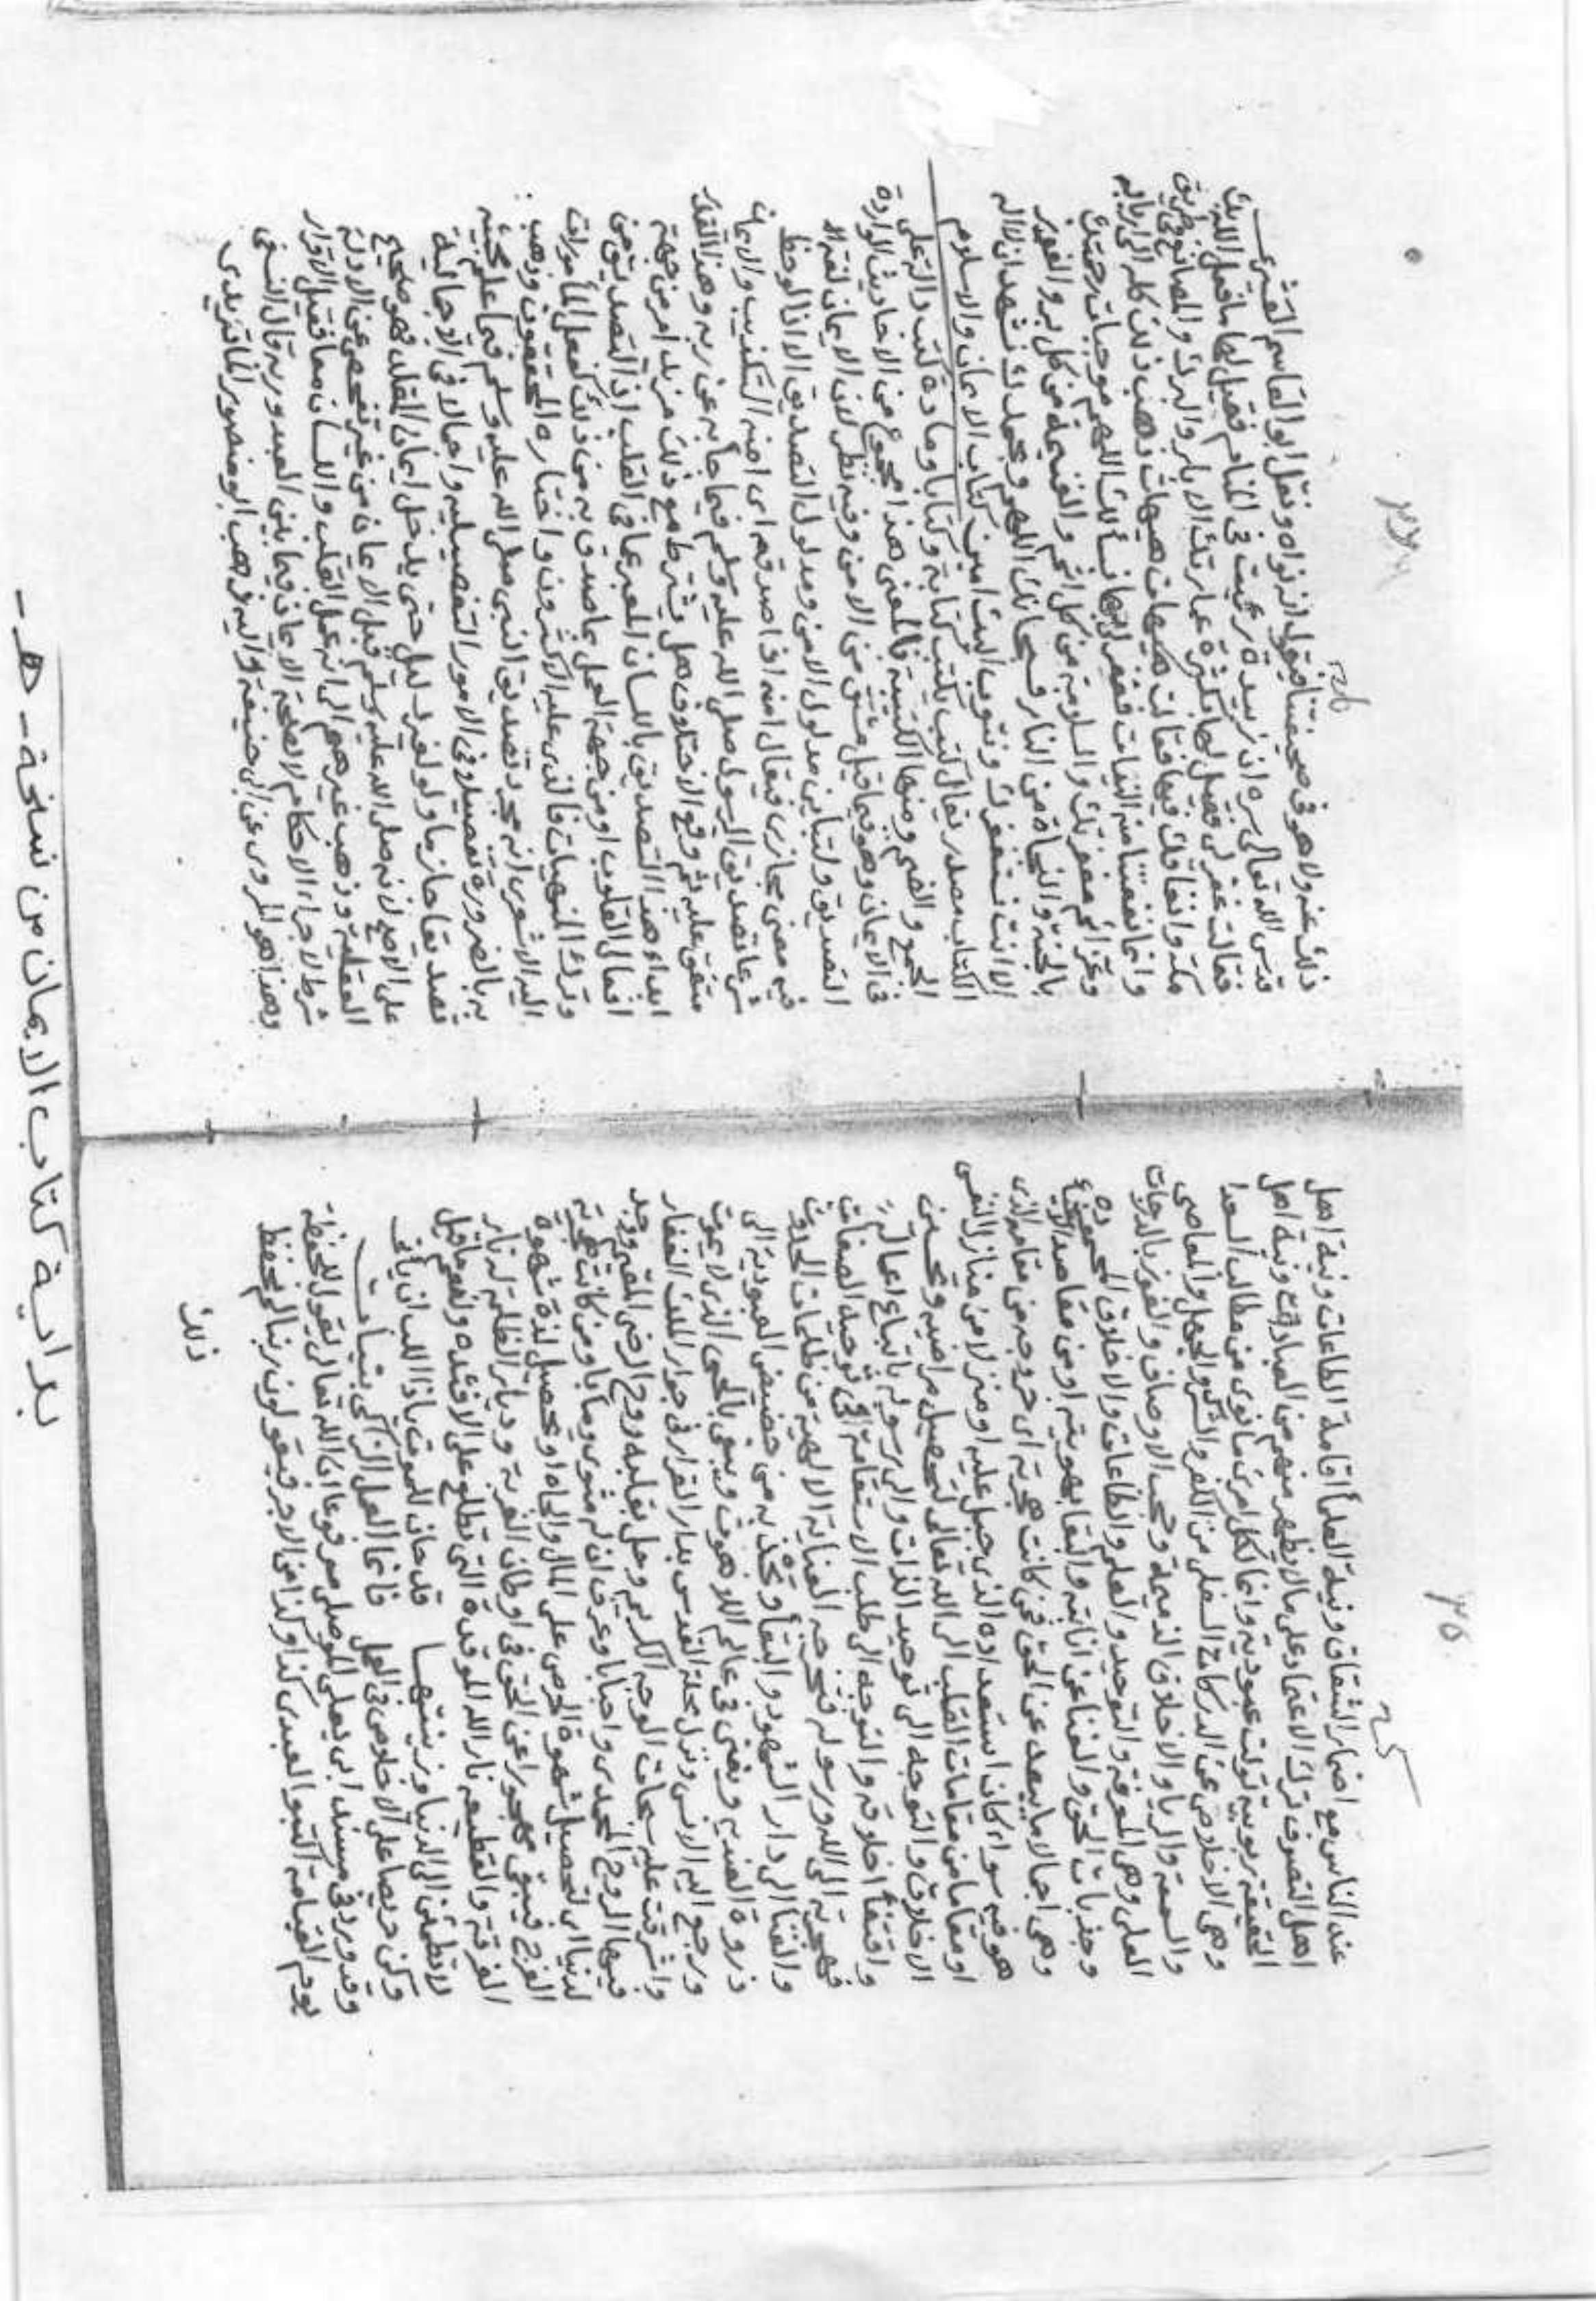 عند الناس مع اضمار الشقاق ونية العلماء اقامة الطاعات ونية اهل
اهل التصوف ترك الاعتماد على ما لا يظهر منهم من العبادات ونية اهل
الحقيقة ربوبية تولت عبودية وانما لكل امرئ ما نوى من مطالب السعدا
وهي الاخلاص عن الدركات السفلى من الكفر والشرك والجهل والمعاصي
والسمعة والريا والاخلاق الذميمة وحجب الاوصاف والفوز بالدرجات
العلى وهي المعرفة والتوحيد والعلم والطاعات والاخلاق المحموده
وجذبات الحق والفنا عن انانيته والبقا بهويته او من مقاصد الاشقياء
وهي اجمالا ما يبعد عن الحق فمن كانت هجرته اى خروجه من مقامه الذى
هو فيه سواء كان استعداده الذى جبل عليه او منزلا من منازل النفس
او مقاما من مقامات القلب الى الله تعالى لتحصيل مراضيه وتحسين
الاخلاق والتوجه الى توحيد الذات والى رسوله باتباع اعماله
واقتفاء اخلاقه والتوجه الى طلب الاستقامة في توحيد الصفات
فهجرته الى الله ورسوله فتخرجه العناية الالهية من ظلمات الحدوث
والفنا الى دار الشهود والبقا وتجذبه من حضيض العبودية الى
ذروة العنديه ويفنى في عالم اللاهوت ويبقى بالحي الذى لا يموت
ورجع اليه الانس ونزل محلة القدس بدار القرار في جوار الملك الغفار
واشرقت عليه سبحات الوجه الكريم وحل بقلبه روح الرضى العميم ووجد
فيها الروح المحمدى واحبابا وعرف ان له مثوى ومآبا ومن كانت هجرته
لدنيا اى لتحصيل شهوة الحرص على المال والجاه او تحصيل لذة شهوة
الفرج فيبقى مهجورا عن الحق في اوطان الغربة وديار الظلمة له نار
الفرقة والقطيعه نار الله الموقدة التى تطلع على الافئدة ولنعم ما قيل
لا تطمئن الى الدنيا وزينتها قد حان للموت يا ذا اللب ان ياتى
وكن حريصا على الاخلاص في العمل فانما العمل الزاكى بنيات
وقد ورد في مسند ابى يعلى الموصلى مرفوعا ان الله تعالى يقول للحفظة
يوم القيامة اكتبوا لعبدى كذا وكذا من الاجر فيقولون ربنا لم نحفظ
ذلك
ذلك عنه ولا هو في صحيفتنا فيقول انه نواه ونقل ابو القاسم القشيرى
قدس الله تعالى سره ان زبيدة رئيت في المنام فقيل لها ما فعل الله بك
فقالت غفر لى فقيل لها بكثرة عمارتك الابار والبرك والمصانع في طريق
مكة وانفاقك فيها فقالت هيهات هيهات ذهب ذلك كله الى اربابه
وانما نفعنا منه النيات فغفر لى بها نسألك اللهم موجبات رحمتك
وعزائم مغفرتك والسلامة من كل اثم والغنيمة من كل بر والفوز
بالجنة والنجاة من النار فسبحانك اللهم وبحمدك نشهد ان لا اله
الا انت نستغفرك ونتوب اليك امين كتاب الايمان والاسلام
الكتاب مصدر يقال كتب يكتب كتابة وكتابا ومادة كتب دالة على
الجمع والضم ومنها الكتيبة فالمعنى هذا مجموع من الاحاديث الواردة
في الايمان وهو فيما قيل مشتق من الامن وفيه نظر لان الايمان لغة
التصديق ولتباين مدلول الامن ومدلول التصديق الا اذا لوحظ
فيه معنى مجازى فيقال امنه اذا صدقه اى امنه التكذيب والايمان
شرعا تصديق الرسول صلى الله عليه وسلم فيما جاء به عن ربه وهذا القدر
متفق عليه ثم وقع الاختلاف هل يشترط مع ذلك مزيد امر من جهة
ابداء هذا التصديق باللسان المعبر عما في القلب اذ التصديق من
افعال القلوب او من جهة العمل بما صدق به من ذلك كفعل المأمورات
وترك المنهيات فالذى عليه الاكثرون واختاره المحققون وذهب
اليه الاشعرى انه مجرد تصديق النبى صلى الله عليه وسلم فيما علم مجيئه
به بالضرورة تفصيلا في الامور التفصيليه واجمالا في الاجمالية
تصديقا جازما ولو لغير دليل حتى يدخل ايمان المقلد فهو صحيح
على الاصح لانه صلى الله عليه وسلم قبل الايمان من غير تفحص عن الادلة
العقلية وذهب غيرهم الى انه عمل القلب واللسان معا فقيل الاقرار
شرط لاجراء الاحكام لا لصحة الايمان فيما بين العبد وربه قال النسفى
وهذا هو المروى عن ابى حنيفة واليه ذهب ابو منصور الماتريدى
بداية كتاب الايمان من نسخة - هـ -